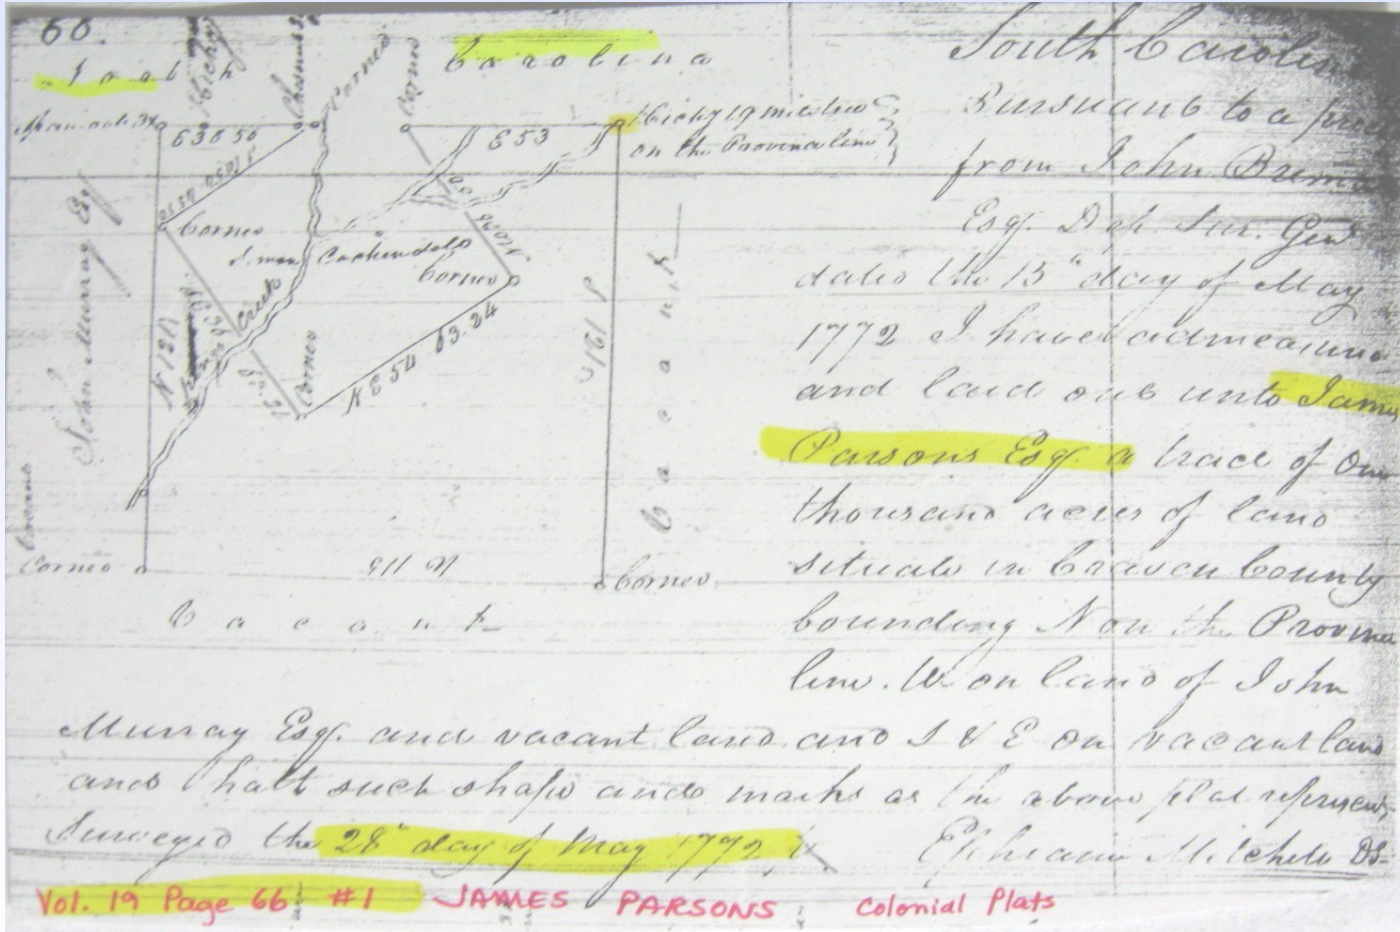 66.
South Carolina
Corner
Corner
Hickory 19 mile tree
on the Province line
E 53
E 38 50
John Murray Esq
Corner
Simon Cockendols
Corner
Creek
Corner
N E 54 63.24
N 121
S 161
vacant
Corner
N 113
Corner
vacant
South Carolina
Pursuant to a
from John Brem
Esqr. Dep. Sur. Genl
dated the 15th day of May
1772 I have admeasured
and laid out unto James
Parsons Esqr. a tract of One
thousand acres of land
situate in Craven County
bounding N on the Province
line. W. on land of John
Murray Esqr. and vacant land and S & E on vacant land
and hath such shape and marks as the above plat represents
Surveyed the 28th day of May 1772
Ephraim Mitchell DS
Vol. 19 Page 66 #1 JAMES PARSONS Colonial Plats